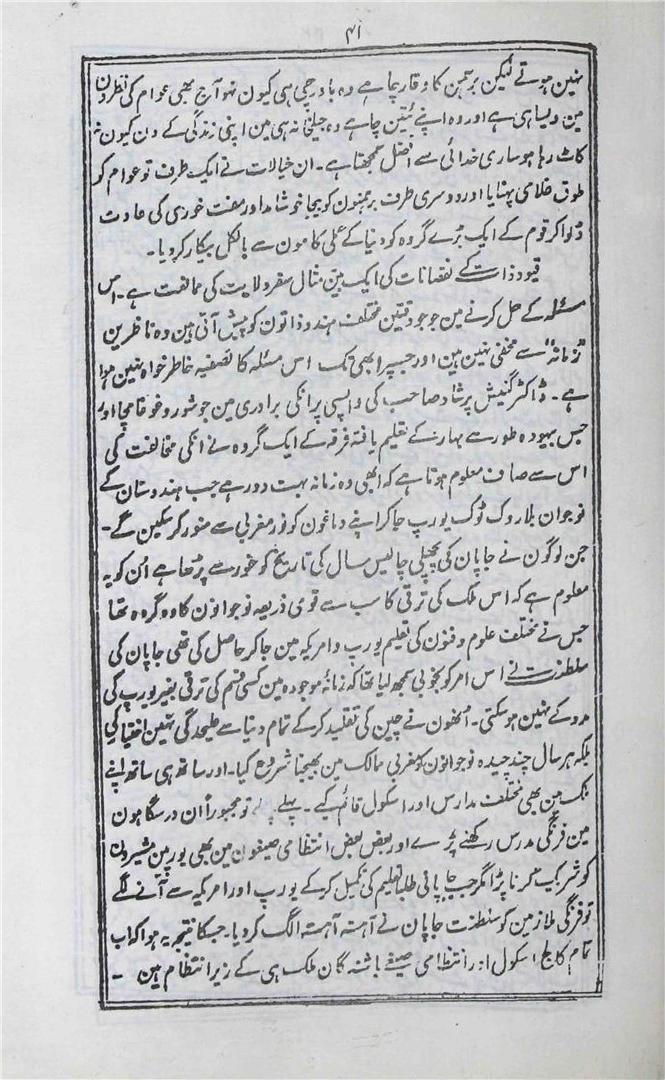 ۴۱
نہین ہوتے لیکن برہمن کا وقار چاہے وہ باورچی ہی کیون نہو آج بھی عوام کی نظرون
مین ویسا ہی ہے اور وہ اپنے تئین چاہے وہ جیلخانہ ہی مین اپنی زندگی کے دن کیون نہ
کاٹ رہا ہو ساری خدائی سے افضل سمجھتا ہے۔ ان خیالات نے ایک طرف تو عوام کو
طوق غلامی پہنایا اور دوسری طرف برہمنون کو بیجا خوشامد اور مفت خوری کی عادت
ڈلوا کر قوم کے ایک بڑے گروہ کو دنیا کے عملی کامون سے بالکل بیکار کر دیا۔
قیود ذات کے نقصانات کی ایک بین مثال سفر ولایت کی ممانعت ہے۔ اس
مسئلہ کے حل کرنے مین جو جو دقتین مختلف ہندو ذاتون کو پیش آئی ہین وہ ناظرین
"زمانہ" سے مخفی نہین ہین اور جسپر ابھی تک اس مسئلہ کا تصفیہ خاطر خواہ نہین ہوا
ہے۔ ڈاکٹر گنیش پرشاد صاحب کی واپسی پر انکی برادری مین جو شور و غوغا مچا اور
جس بیہودہ طور سے بہار کے تعلیم یافتہ فرقہ کے ایک گروہ نے انکی مخالفت کی
اس سے صاف معلوم ہوتا ہے کہ ابھی وہ زمانہ بہت دور ہے جب ہندوستان کے
نوجوان بلا روک ٹوک یورپ جا کر اپنے دماغون کو نور مغربی سے منور کر سکین گے۔
جن لوگون نے جاپان کی پچھلی چالیس سال کی تاریخ کو غور سے پڑھا ہے اُن کو یہ
معلوم ہے کہ اس ملک کی ترقی کا سب سے قوی ذریعہ نوجوانون کا وہ گروہ تھا
جس نے مختلف علوم و فنون کی تعلیم یورپ و امریکہ مین جا کر حاصل کی تھی جاپان کی
سلطنت نے اس امر کو بخوبی سمجھ لیا تھا کہ زمانۂ موجودہ مین کسی قسم کی ترقی بغیر یورپ کی
مدد کے نہین ہو سکتی۔ اُنھون نے چین کی تقلید کر کے تمام دنیا سے علیحدگی نہین اختیار کی
بلکہ ہر سال چند چیدہ نوجوانون کو مغربی ممالک مین بھیجنا شروع کیا۔ اور ساتھ ہی ساتھ اپنے
ملک مین بھی مختلف مدارس اور اسکول قائم کیے۔ پہلے پہلے تو مجبوراً ان درسگاہون
مین فرنگی مدرس رکھنے پڑے اور بعض بعض انتظامی صیغون مین بھی یورپین مشیرون
کو شریک کرنا پڑا مگر جب جاپانی طلبا تعلیم کی تکمیل کر کے یورپ اور امریکہ سے آنے لگے
تو فرنگی ملازمین کو سلطنت جاپان نے آہستہ آہستہ الگ کر دیا۔ جسکا نتیجہ یہ ہوا کہ اب
تمام کالج اسکول اور انتظامی صیغے باشندگان ملک ہی کے زیر انتظام ہین۔